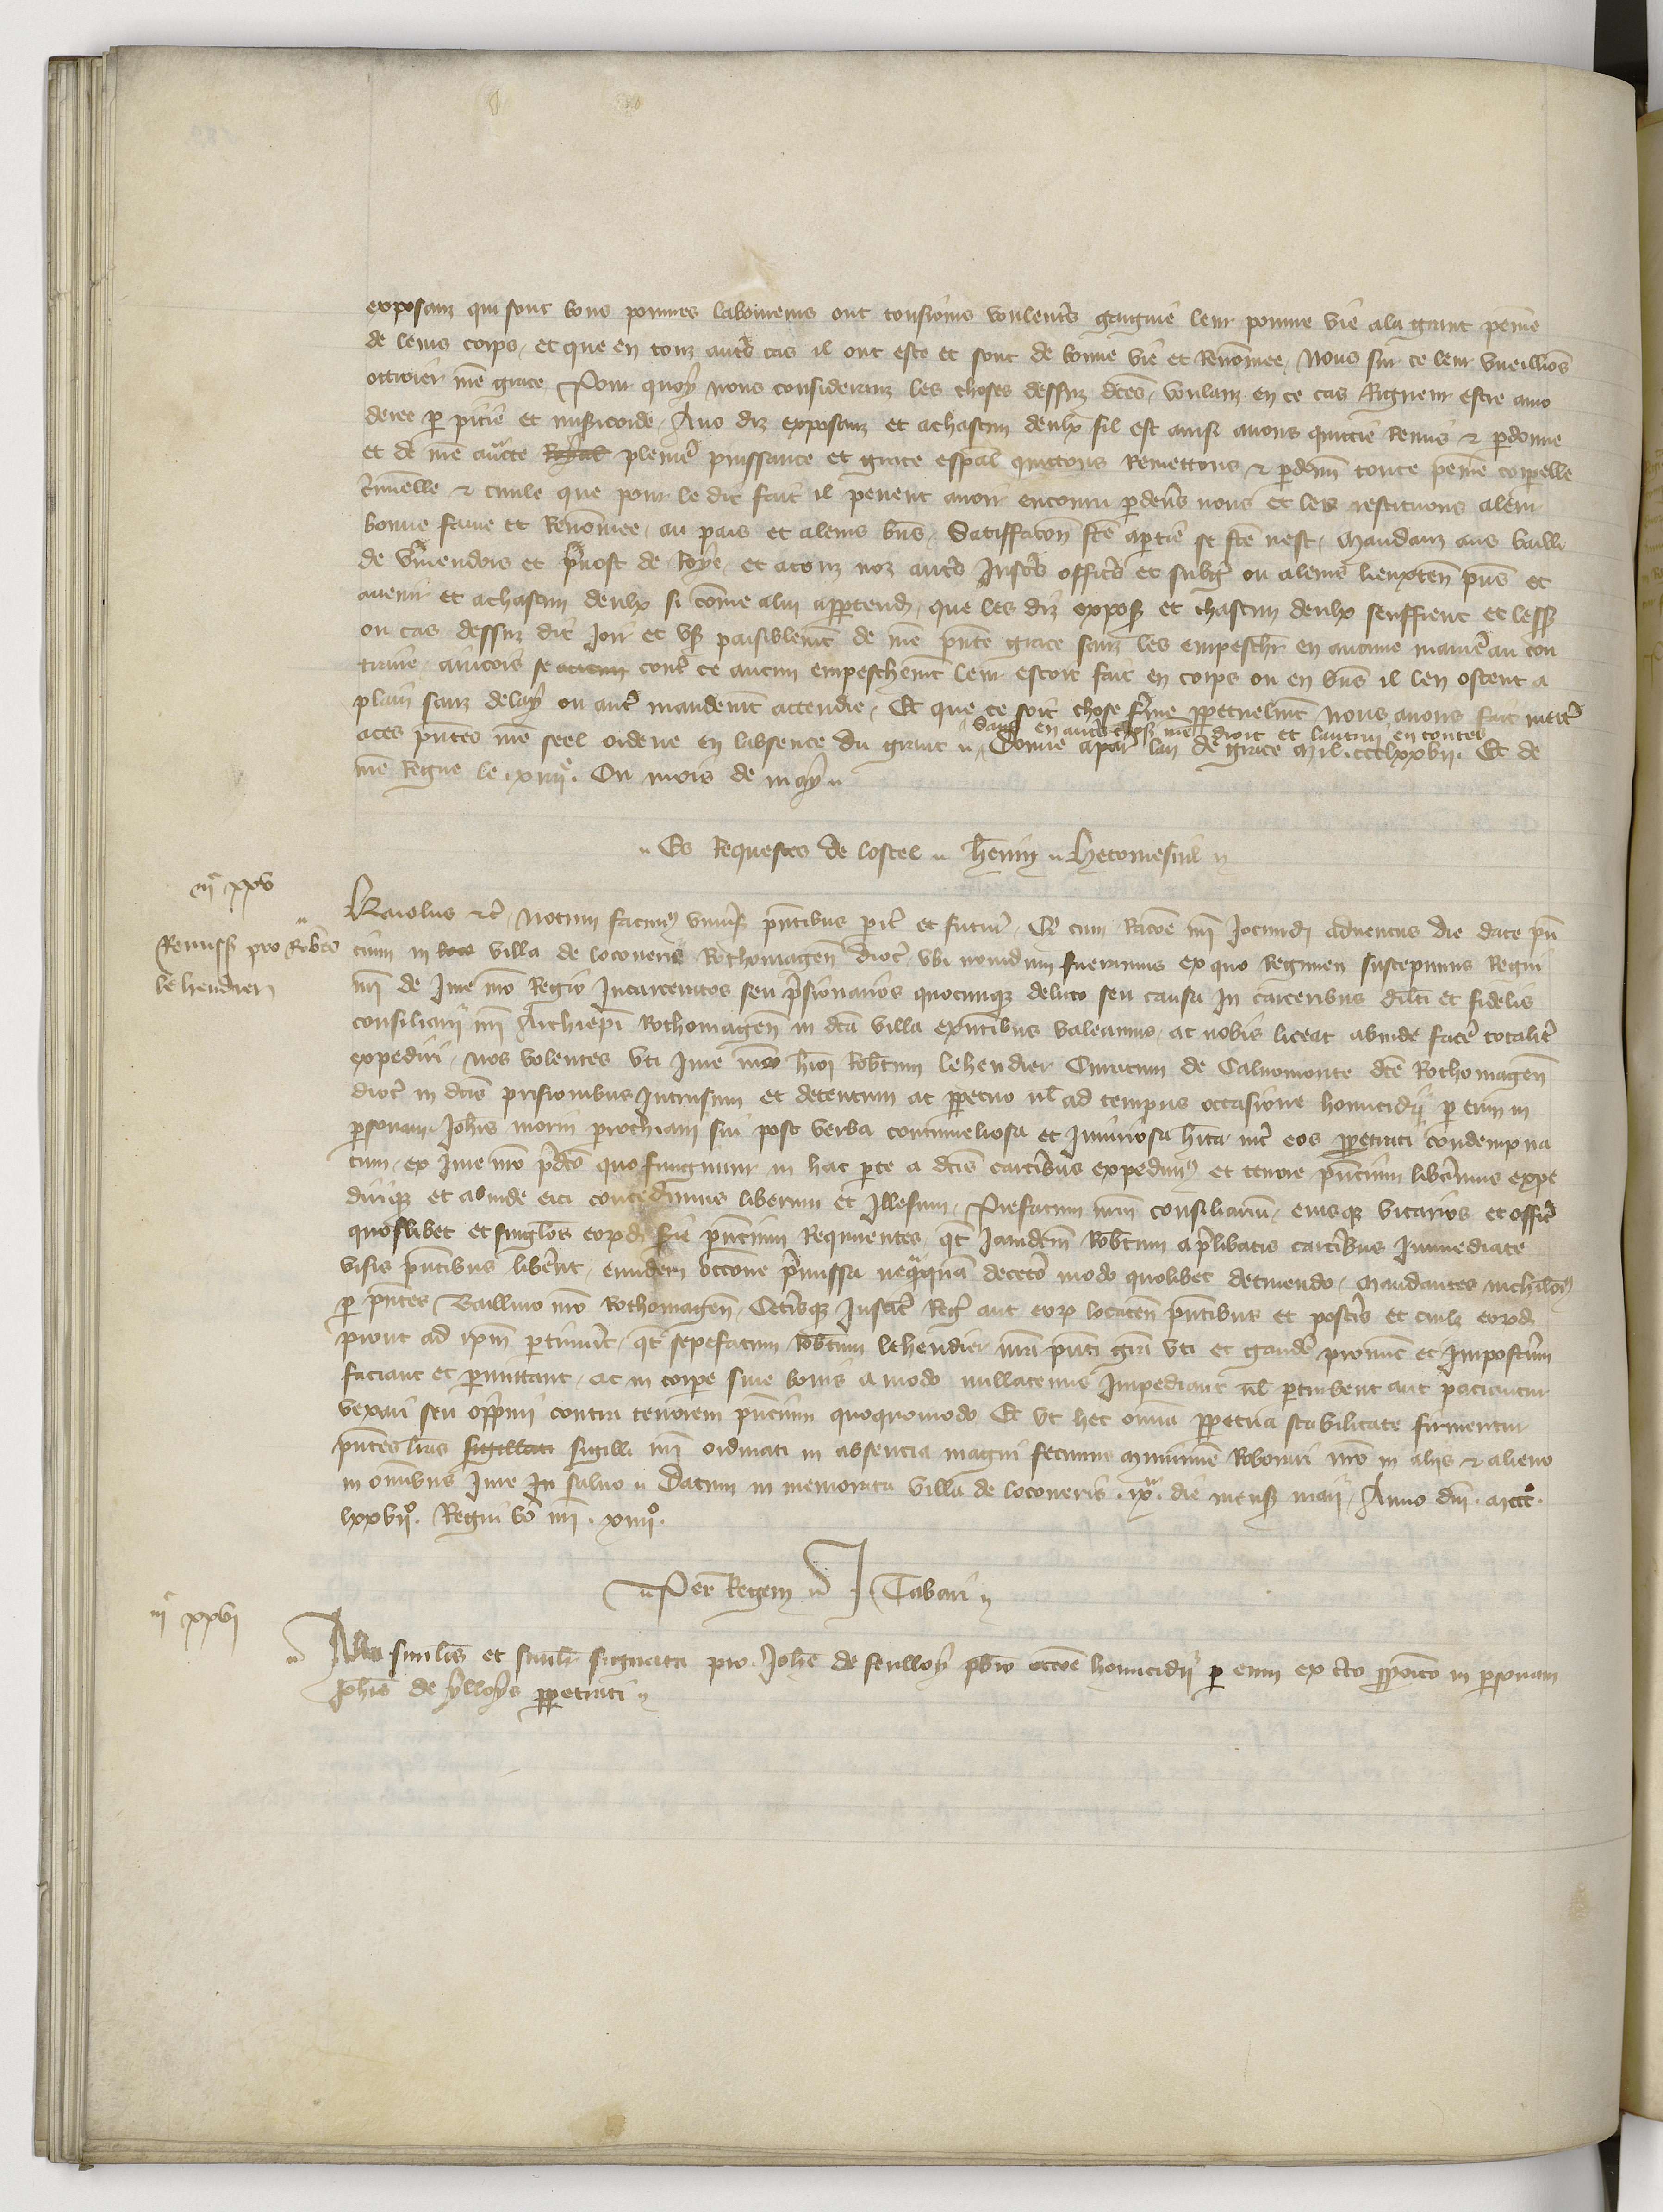 exposanz qui sont bons poures laboureurs ont tousiours voulentrs gaignie leur poure vie a la grant peine
de leurs corps, et que en touz autrs cas il ont este et sont de bonne vie et Renomee. Nous sur ce leur vueillions
ottroier nre grace Pour quoy nous considerans les choses dessuz dces, voulanz en ce cas Rigueur estre amo
deree par pitie et misericorde, Aus diz exposanz et a chascun deulx sil est ainsi auons quittie Remis & perdonne
et de nre aucte Royal pleniere puissance et grace espal quittons Remettons & perdonn toute peine corpelle
criminelle & ciuile que pour le dit fait il peuent auoir encouru perdeurs nous et les restituons a leur
bonne fame et Renomee, au pais et a leurs bns, Satiffacon fte a partie se fte nest, Mandanz aus bailli
de Vermendois et preuost de Roye, et a touz noz autrs Justicrs officrs et subgiz ou a leurs lieuxten prns et
auenir et a chascun deulx si come a lui appartendra, que les diz exposz et chascun deulx seuffrent et lessz
ou cas dessuz dit Joir et vser paisiblemt de nre prnte grace sanz les empeschr en aucune maniere au con
traire, aincois se aucun contr ce aucun empeschemt leur estoit fait en corps ou en bns il len ostent a
plain sanz delay ou autr mandemt attendre, Et que ce soit chose ferme perpetuelmt nous auons fait mettr
Sauf en autrs choses nre droit et lautrui en toutes
a ces prntes nre seel ordene en labsence du grant Donne a par lan de grace Mil.ccclxxvii. Et de
nre Regne le .xiiiie. Ou mois de may

Es Requestes de lostel Henry Hetomesnil

iic xxv
Remissi pro Robto
le hendier
Karolus etc Notum facimus vniuersis prntibus paritr et futuris, Qd cum Racoe nri Jocundi aduentus die date prn
cium in loco villa de locoueris Rothomagen dioc vbi nondum fueramus ex quo Regimen suscepimus Regni
nri de Jure nro Regio Incarceratos seu prisionarios quocunque delicto seu causa In carceribus dilcti et fidelis
consiliarii nri Archiepi Rothomagen in dca villa exntibus valeamus, ac nobis liceat abinde facere totalitr
expediri, nos volentes vti Jure nro hioi Robtum lehendier Curatum de Caluomonte dce Rothomagen
dioc in dcis prisionibus Intrusum et detentum ac perpetuo vel ad tempus occasione homicidii per eum in
personam Johis morin parochiani sui post verba contumeliosa et Iniuriosa hita intr eos perpetrati condempna
tum, ex Jure nro predco quo fungimur in hac parte a dcis carcribus expedimus et tenore prncium libramus expe
diuique et abinde eici concedimus liberum et Illesum, Prefatum nrm consiliarium, eiusque vicarios et officr
quoslibet et singlos eorumdem, serie prncium Requirentes, qtr Jamdcm Robtum a prelibatis carcribus Immediate
visis prntibus liberent, eumdem occone premissa nequaquam decetro modo quolibet detinendo, Mandantes nichilominus
per prntes Balliuo nro Rothomagen, Cetrisque Justicr Regni aut eorum locaten prntibus et postris et cuilibet eorumdem
prout ad ipm pertinuerit, qtr sepefatum Robtum lehendier nra prnti gra vti et gaudere pronunc et Imposterum
faciant et permittant, ac in corpore siue bonis a modo nullatenus Impediant vel perturbent aut paciantur
vexari seu opprimi contra tenorem prncium quoquomodo, Et vt hec omnia perpetua stabilitate firmentur
prntes lras sigillati sigilli nri ordinati in absencia magni fecimus munimine Roborari nro in aliis & alieno
in omnibus Jure In saluo Datum in memorata villa de locoueris .ixa. die mensis maii Anno dni.Mccco.
lxxviio. Regni vo nri .xiiiio.

Per Regem J Tabari

iic xxvi
Alia similis et similr signata pro Johe de feulloy pbro occoe homicidii per eum ex cto proposito in personam
Johis de ylloys perpetrati